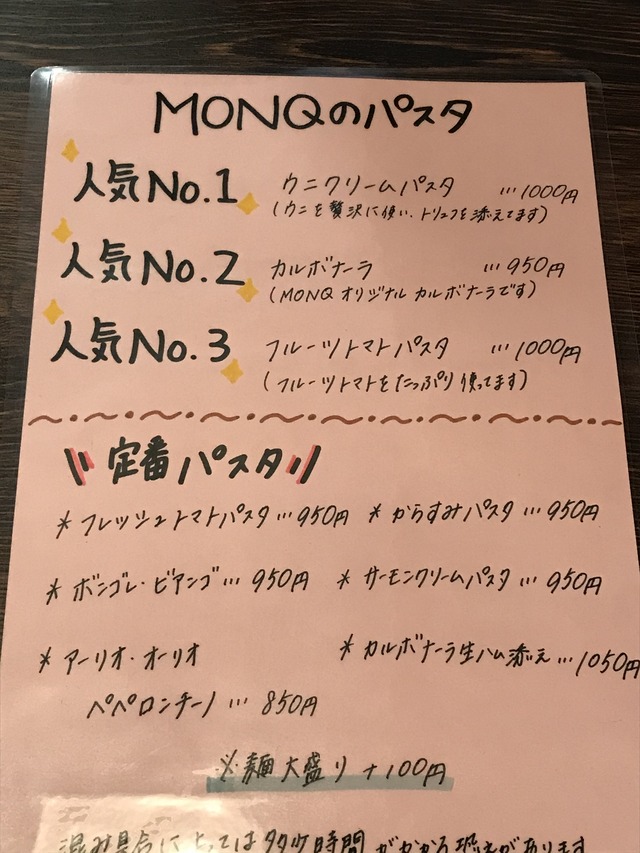 MONQのパスタ
人気No.1 ウニクリームパスタ …1000円
(ウニを贅沢に使い、トリュフを添えてます)
人気No.2 カルボナーラ …950円
(MONQ オリジナル カルボナーラです)
人気No.3 フルーツトマトパスタ …1000円
(フルーツトマトをたっぷり使ってます)
定番パスタ
*フレッシュトマトパスタ…950円 *からすみパスタ…950円
*ボンゴレ・ビアンゴ…950円 *サーモンクリームパスタ…950円
*アーリオ・オーリオ *カルボナーラ生ハム添え…1050円
ペペロンチーノ…850円
※麺大盛り+100円
混み具合によっては多少時間がかかる恐れがあります